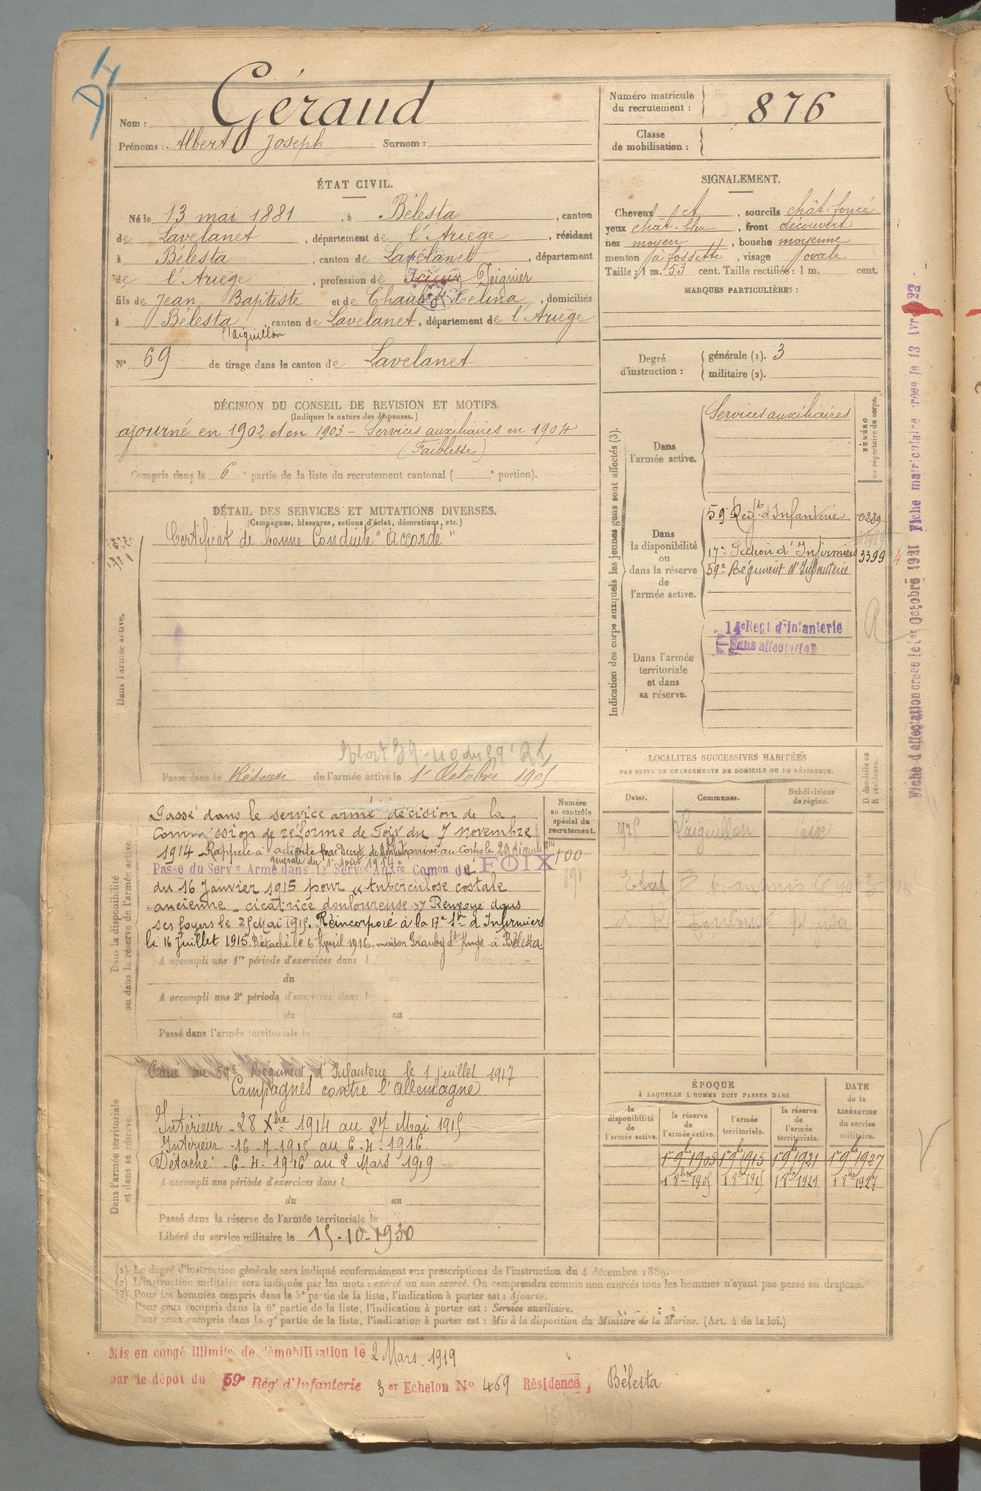 Géraud
Nom :
Prénoms : Albert Joseph Surnom :
Numéro matricule du recrutement : 876
Classe de mobilisation :
ÉTAT CIVIL.
Né le 13 mai 1881, à Bélesta, canton
de Lavelanet, département de l'Ariège, résidant
à Bélesta, canton de Lavelanet, département
de l'Ariège, profession de Peignier
fils de Jean Baptiste et de Célina, domiciliés
à Bélesta, canton de Lavelanet, département de l'Ariège
l'aiguillon
N° 69 de tirage dans le canton de Lavelanet
SIGNALEMENT.
Cheveux et, sourcils chât. foncé
yeux chât. bleu, front découvert
nez moyen, bouche moyenne
menton à fossette, visage ovale
Taille : 1 m. 53 cent. Taille rectifiée : 1 m. cent.
MARQUES PARTICULIÈRES :
Degré d'instruction : générale (1). 3
militaire (2).
DÉCISION DU CONSEIL DE REVISION ET MOTIFS.
(Indiquer la nature des dispenses.)
ajourné en 1902 et en 1903 - Services auxiliaires en 1904
(Faiblesse)
Compris dans la 6e partie de la liste du recrutement cantonal ( e portion).
DÉTAIL DES SERVICES ET MUTATIONS DIVERSES.
(Campagnes, blessures, actions d'éclat, décorations, etc.)
Certificat de bonne Conduite "Accordé"
Dans l'armée active.
Passé dans la Réserve de l'armée active le 1er Octobre 1905
Indication des corps auxquels les jeunes gens sont affectés (3).
Dans l'armée active.
Services auxiliaires
NUMÉRO au répertoire du corps.
Dans la disponibilité ou dans la réserve de l'armée active.
59e Régt d'Infanterie 0289
17e Section d'Infirmiers 3399
59e Régiment d'Infanterie
14e Régt d'Infanterie
Sans affectation
Dans l'armée territoriale et dans sa réserve.
Fiche d'affectation créée le 1er Octobre 1921 Fiche matriculaire créée le 13 Avr 1922
LOCALITÉS SUCCESSIVES HABITÉES
PAR SUITE DE CHANGEMENTS DE DOMICILE OU DE RÉSIDENCE.
Dates. Communes. Subdivisions de région. D domicile ou R résidence.
L'aiguillon Foix
Dans la disponibilité ou dans la réserve de l'armée active.
Numéro au contrôle spécial du recrutement.
100
Passé dans le service armé décision de la
Commission de réforme de Foix du 7 novembre
1914 - Rappelé à
générale du 1er août 1914
Passé du Serv. Armé dans le Serv. Aux. Comon de FOIX
du 16 Janvier 1915 pour "tuberculose costale
ancienne - cicatrice douloureuse" Renvoyé dans
ses foyers le 27 Mai 1915. Réincorporé à la 17e Son d'Infirmiers
le 16 Juillet 1915. Détaché le 6 Avril 1916, maison à Bélesta
A accompli une 1re période d'exercices dans l
du au
A accompli une 2e période d'exercices dans l
du au
Passé dans l'armée territoriale le
Dans l'armée territoriale et dans sa réserve.
Passé au 59e Régiment d'Infanterie le 1 Juillet 1917
Campagnes contre l'Allemagne
Intérieur - 28 Xbre 1914 au 27 Mai 1915
Intérieur - 16-7-1915 au 6-4-1916
Détaché - 6-4-1916 au 2 Mars 1919
A accompli une période d'exercices dans l
du au
Passé dans la réserve de l'armée territoriale le
Libéré du service militaire le 15-10-1930
ÉPOQUE
À LAQUELLE L'HOMME DOIT PASSER DANS
la disponibilité de l'armée active. la réserve de l'armée active. l'armée territoriale. la réserve de l'armée territoriale. DATE de la LIBÉRATION du service militaire.
1905 1915 1921 1927
1905 1915 1921 1927
(1) Le degré d'instruction générale sera indiqué conformément aux prescriptions de l'instruction du 4 décembre 1889.
(2) L'instruction militaire sera indiquée par les mots : exercé ou non exercé. On comprendra comme non exercés tous les hommes n'ayant pas passé au drapeau.
(3) Pour les hommes compris dans la 5e partie de la liste, l'indication à porter est : Ajourné.
Pour ceux compris dans la 6e partie de la liste, l'indication à porter est : Service auxiliaire.
Pour ceux compris dans la 7e partie de la liste, l'indication à porter est : Mis à la disposition du Ministre de la Marine. (Art. 4 de la loi.)
Mis en congé illimité de démobilisation le 2 Mars 1919
par le dépôt du 59e Rég. d'Infanterie 3er Echelon N° 469 Résidence, Bélesta